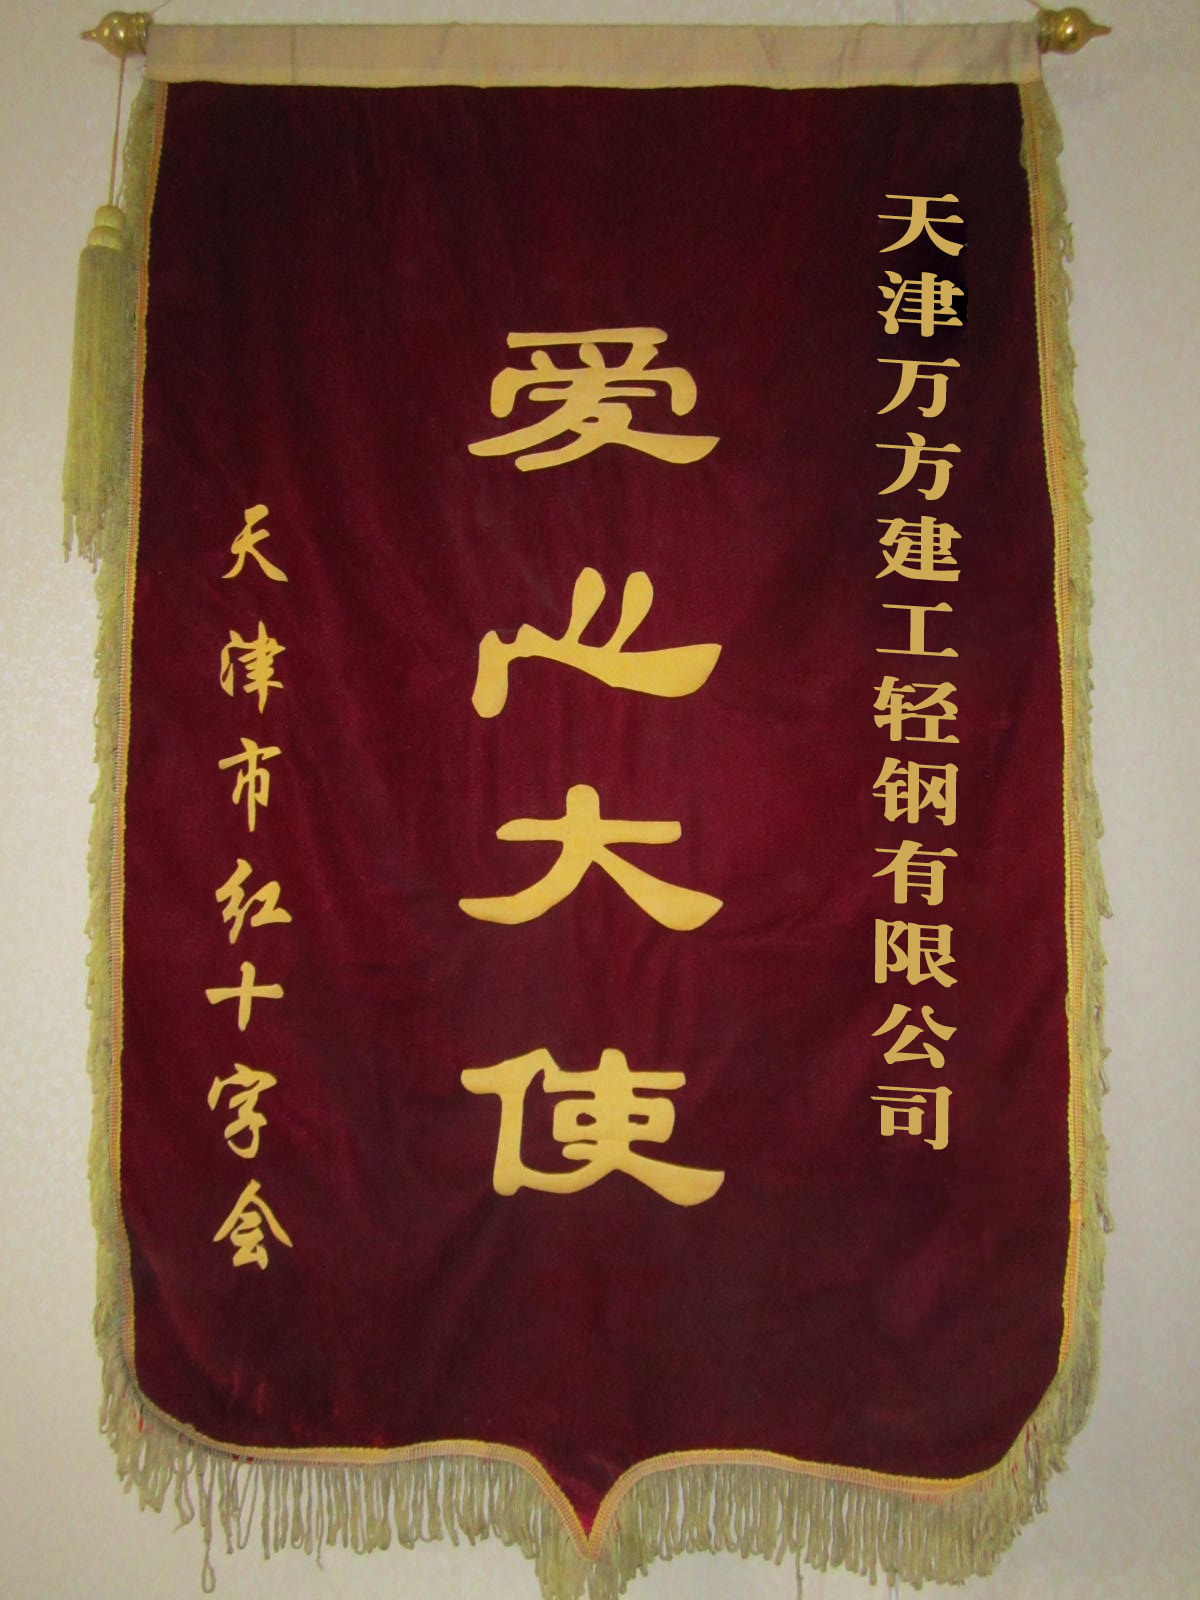 天津万方建工轻钢有限公司
爱心大使
天津市红十字会